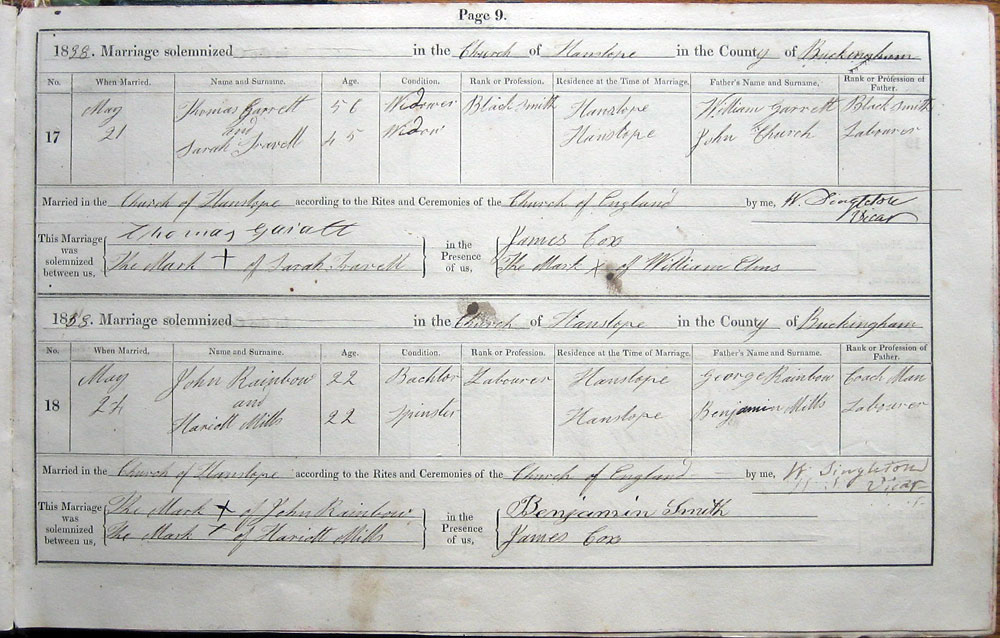 Page 9.
1838. Marriage solemnized in the Church of Hanslope in the County of Buckingham
No. When Married. Name and Surname. Age. Condition. Rank or Profession. Residence at the Time of Marriage. Father's Name and Surname. Rank or Profession of Father.
May Thomas Garrett 56 Widower Black Smith Hanslope William Garrett Black Smith
17 21 and
Sarah Travell 45 Widow Hanslope John Church Labourer
Married in the Church of Hanslope according to the Rites and Ceremonies of the Church of England by me, W. Singleton
Vicar
This Marriage was solemnized between us, Thomas Gaiatt in the Presence of us, James Cox
The Mark + of Sarah Travell The Mark x of William Elms
1838. Marriage solemnized in the Church of Hanslope in the County of Buckingham
No. When Married. Name and Surname. Age. Condition. Rank or Profession. Residence at the Time of Marriage. Father's Name and Surname. Rank or Profession of Father.
May John Rainbow 22 Bachlor Labourer Hanslope George Rainbow Coach Man
18 24 and
Hariott Mills 22 Spinster Hanslope Benjamin Mills Labourer
Married in the Church of Hanslope according to the Rites and Ceremonies of the Church of England by me, W. Singleton
Vicar
This Marriage was solemnized between us, The Mark + of John Rainbow in the Presence of us, Benjamin Smith
The Mark + of Hariott Mills James Cox